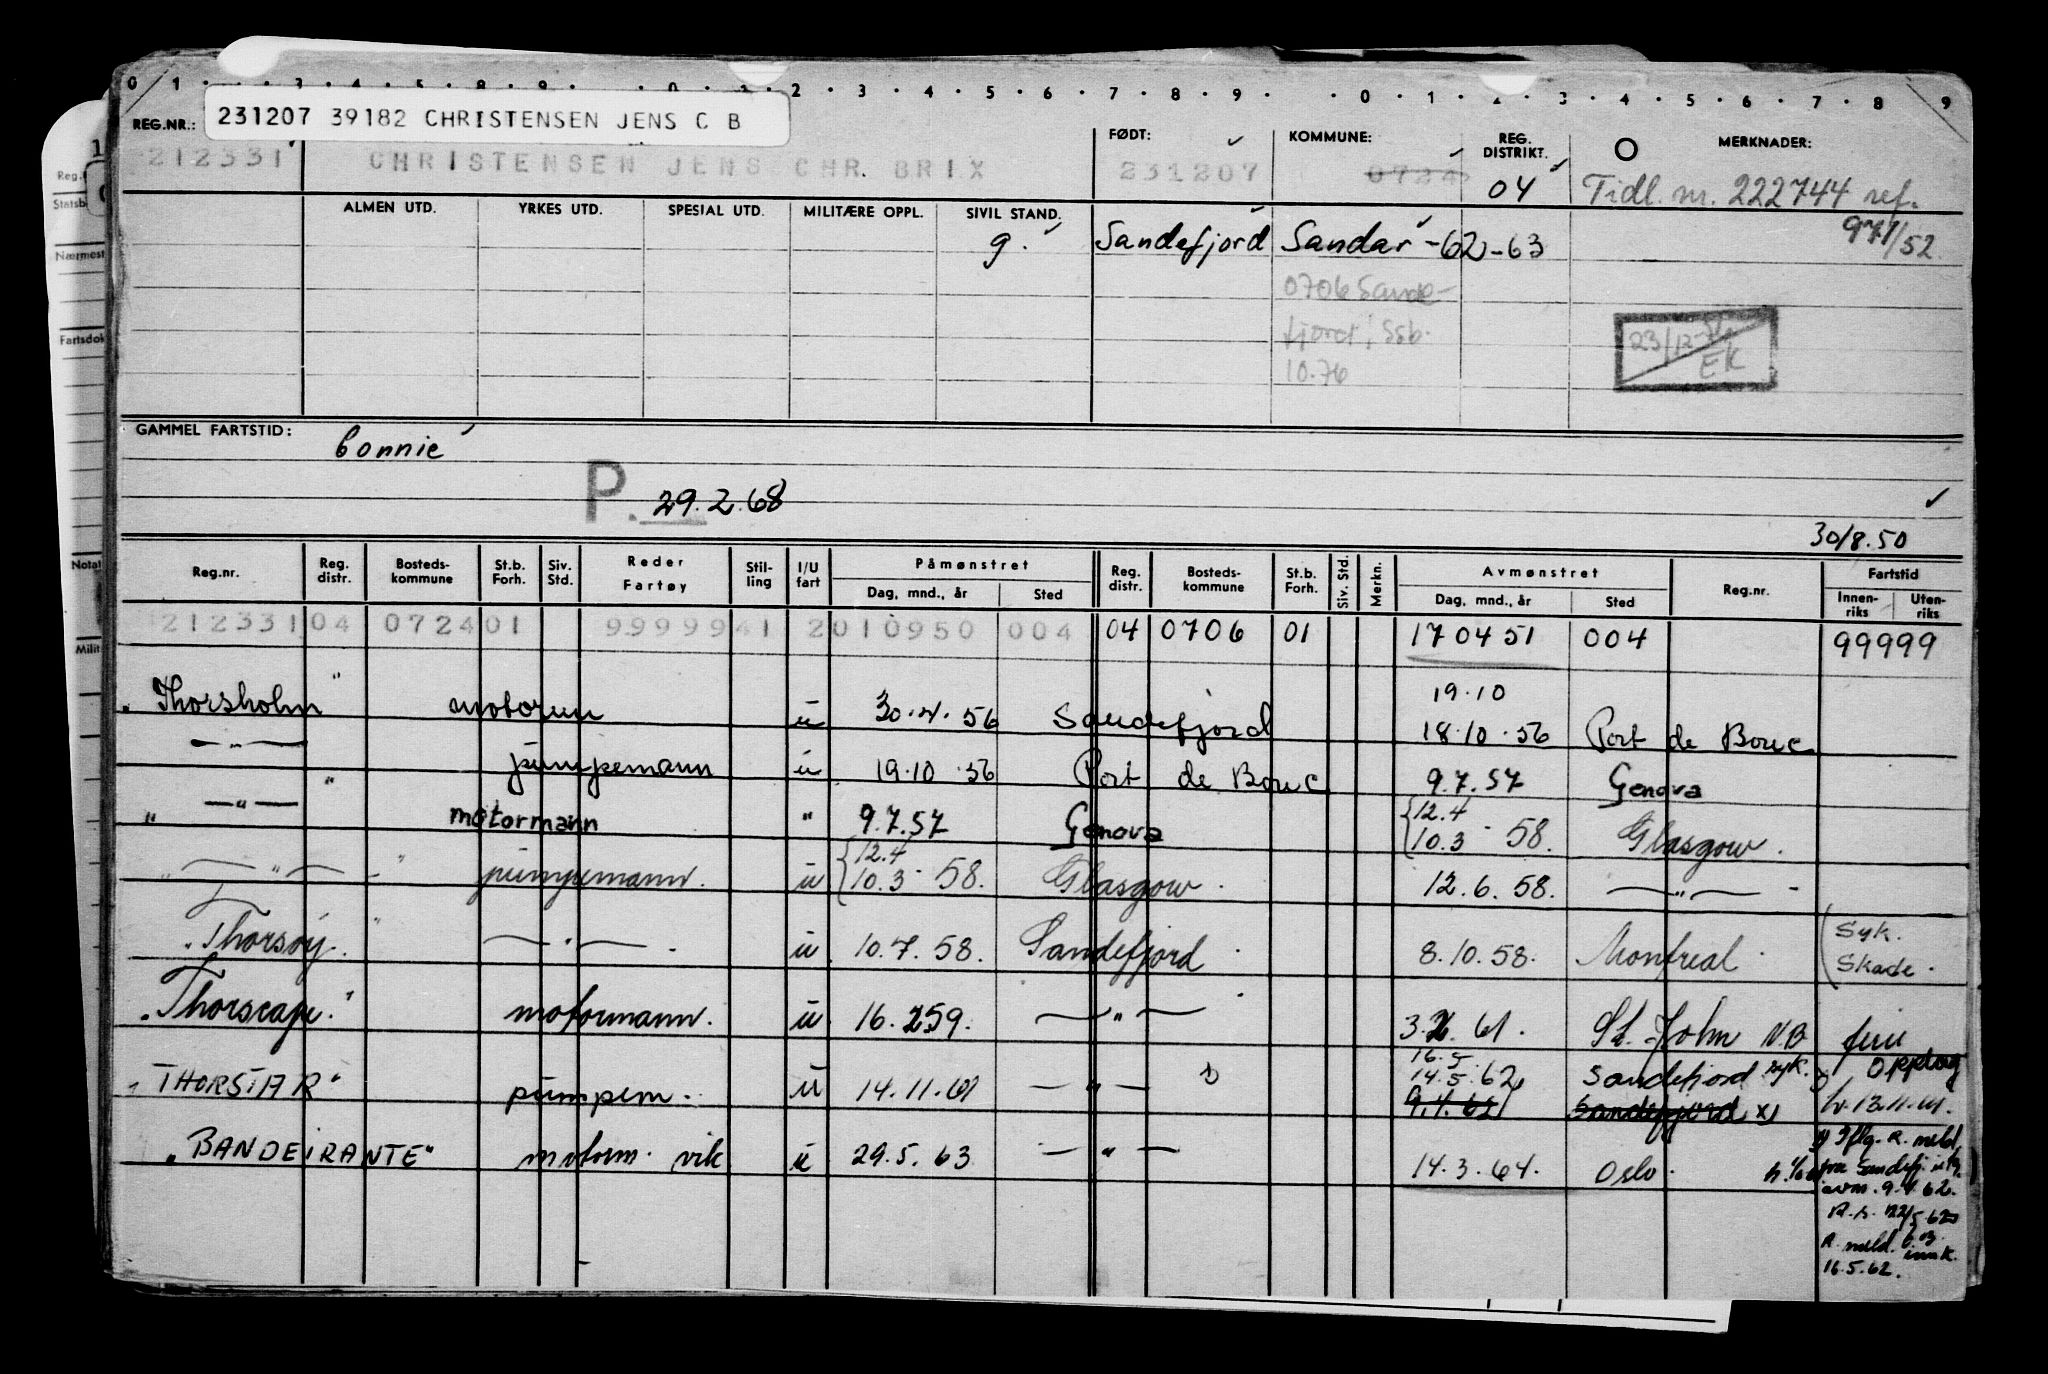 0 1 . . 3 . 4 . 5 . 8 . 9 . . 0 . 1 . 2 . 3 . 4 . 5 . 6 . 7 . 8 . 9 . . 0 . 1 . 2 . 3 . 4 . 5 . 6 . 7 . 8 9
231207 39182 CHRISTENSEN JENS C B
REG.NR.: FØDT: KOMMUNE: REG. DISTRIKT. MERKNADER:
212331 CHRISTENSEN JENS CHR. BRIX 231207 0724 04 Tidl. nr. 222744 ref.
971/52
ALMEN UTD. YRKES UTD. SPESIAL UTD. MILITÆRE OPPL. SIVIL STAND.
g. Sandefjord Sandar -62-63
0706 Sande-
fjord, Ssb.
10.76
23/12 EK
GAMMEL FARTSTID: Connie
P. 29.2.68
30/8.50
Reg.nr. Reg. distr. Bosteds- kommune St.b. Forh. Siv. Std. Reder Fartøy Stil- ling I/U fart Påmønstret Reg. distr. Bosteds- kommune St.b. Forh. Siv. Std. Merkn. Avmønstret Reg.nr. Fartstid
Dag, mnd., år Sted Dag, mnd., år Sted Innen- riks Uten- riks
212331 04 0724 01 99999 41 2 010950 004 04 0706 01 170451 004 99999
19.10
"Thorsholm" motorm u 30.4.56 Sandefjord 18.10.56 Port de Bouc
—"— pumpemann u 19.10.56 Port de Bouc 9.7.57 Genova
"—"—" motormann " 9.7.57 Genova {12.4 10.3 - 58. Glasgow.
"—"—" pumpemann. u {12.4 10.3 - 58. Glasgow. 12.6.58. —"—
"Thorsøy." —"—. u 10.7.58. Sandefjord. 8.10.58. Montreal. (Syk. Skade.
"Thorscape." motormann. u 16.2.59. —"— 3.2.61. St. John N.B. ferie
16.5
"THORSTAR" pumpem. u 14.11.61 —"— 14.5.62 Sandefjord syk. Opplag
9.4.62 Sandefjord x) h. 13.11.61.
"BANDEIRANTE" motorm. vik u 29.5.63 —"— 14.3.64. Oslo.
avm. 9.4.62.
R. s. 22/5 62
R. meld.
16.5.62.